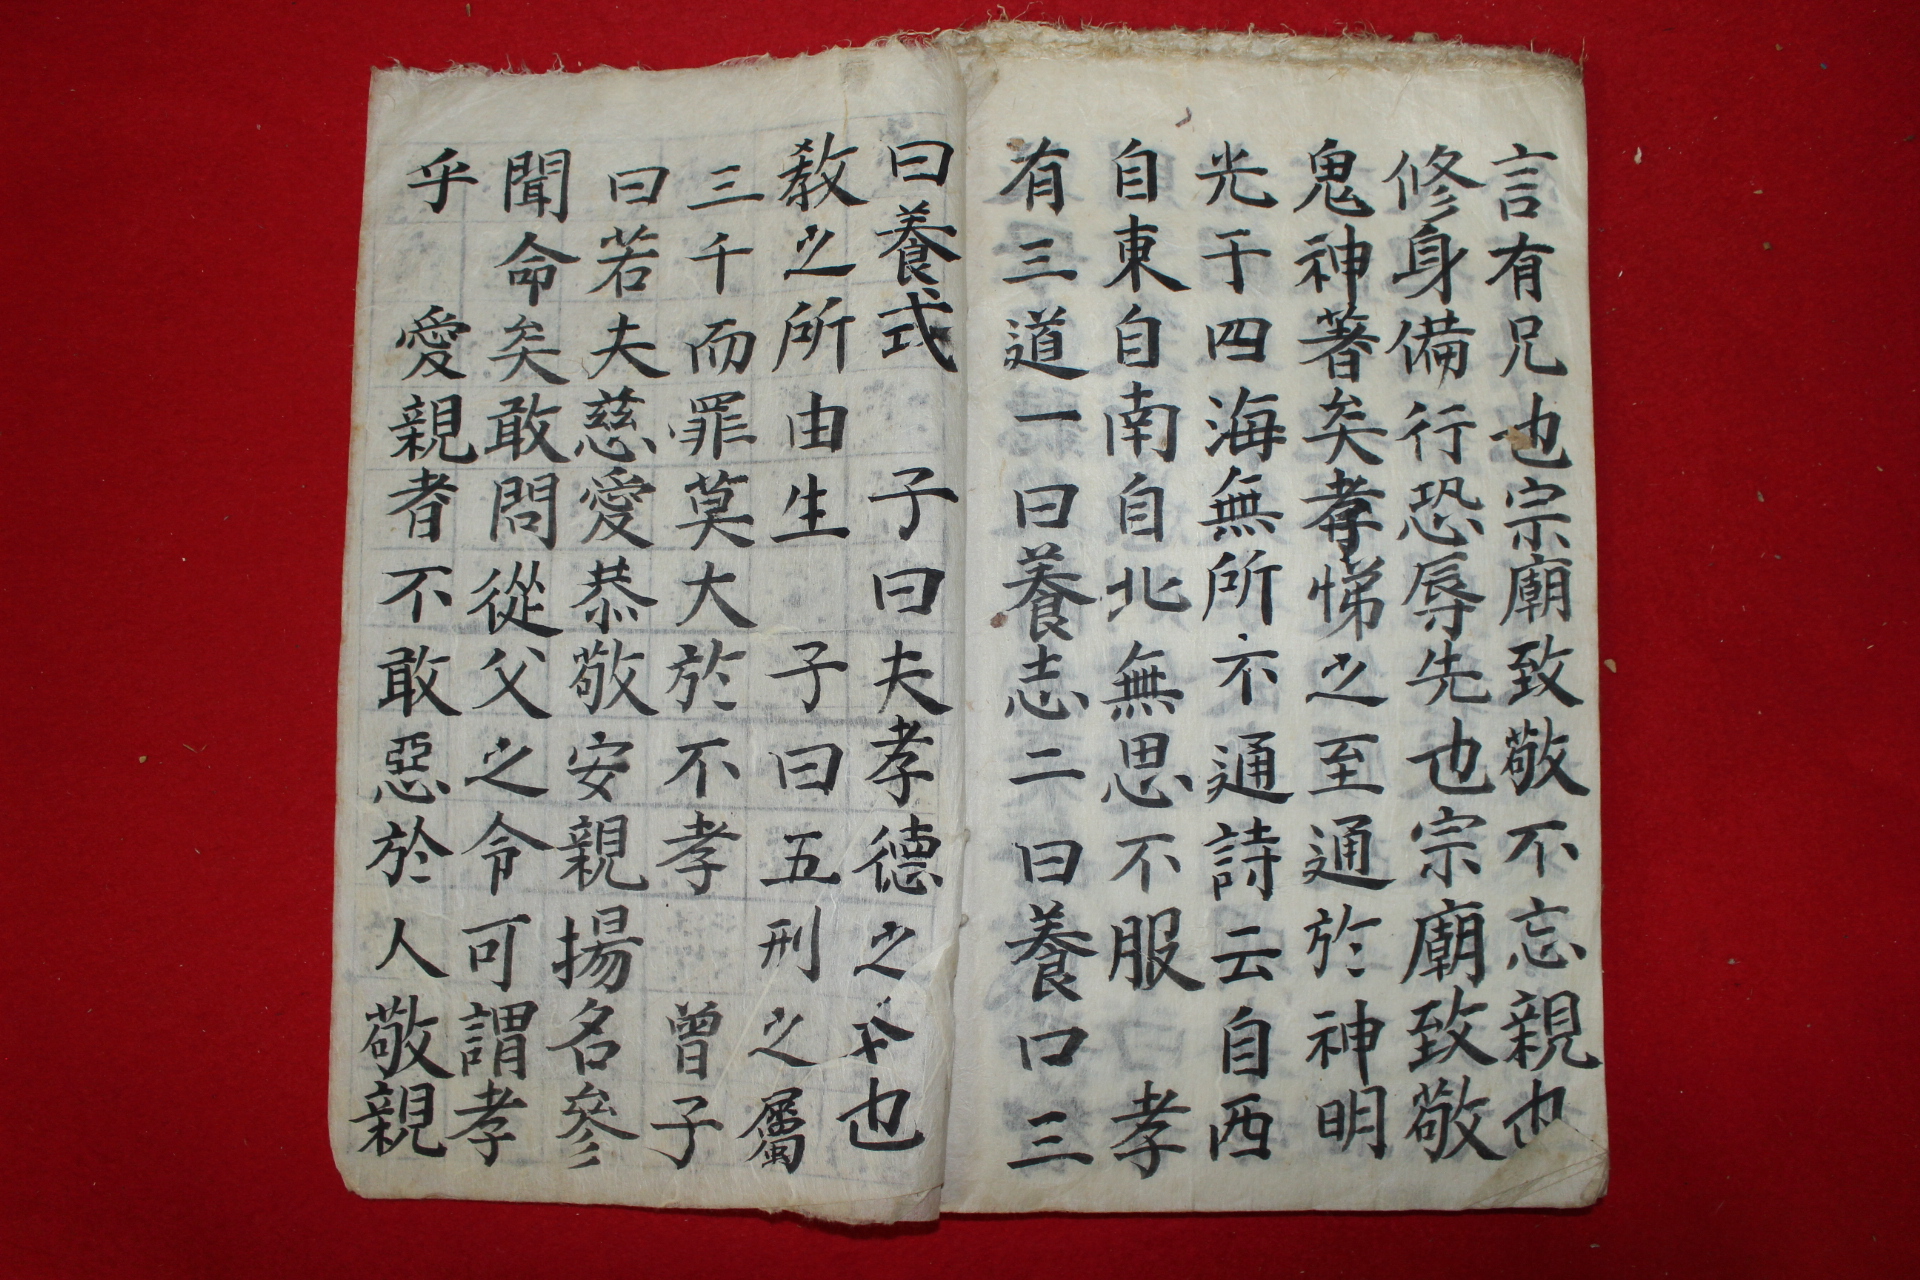 言有兄也宗廟致敬不忘親也
修身備行恐辱先也宗廟致敬
鬼神著矣孝悌之至通於神明
光于四海無所不通詩云自西
自東自南自北無思不服 孝
有三道一曰養志二曰養口三
曰養式 子曰夫孝德之本也
敎之所由生 子曰五刑之屬
三千而罪莫大於不孝 曾子
曰若夫慈愛恭敬安親揚名參
聞命矣敢問從父之令可謂孝
乎 愛親者不敢惡於人敬親